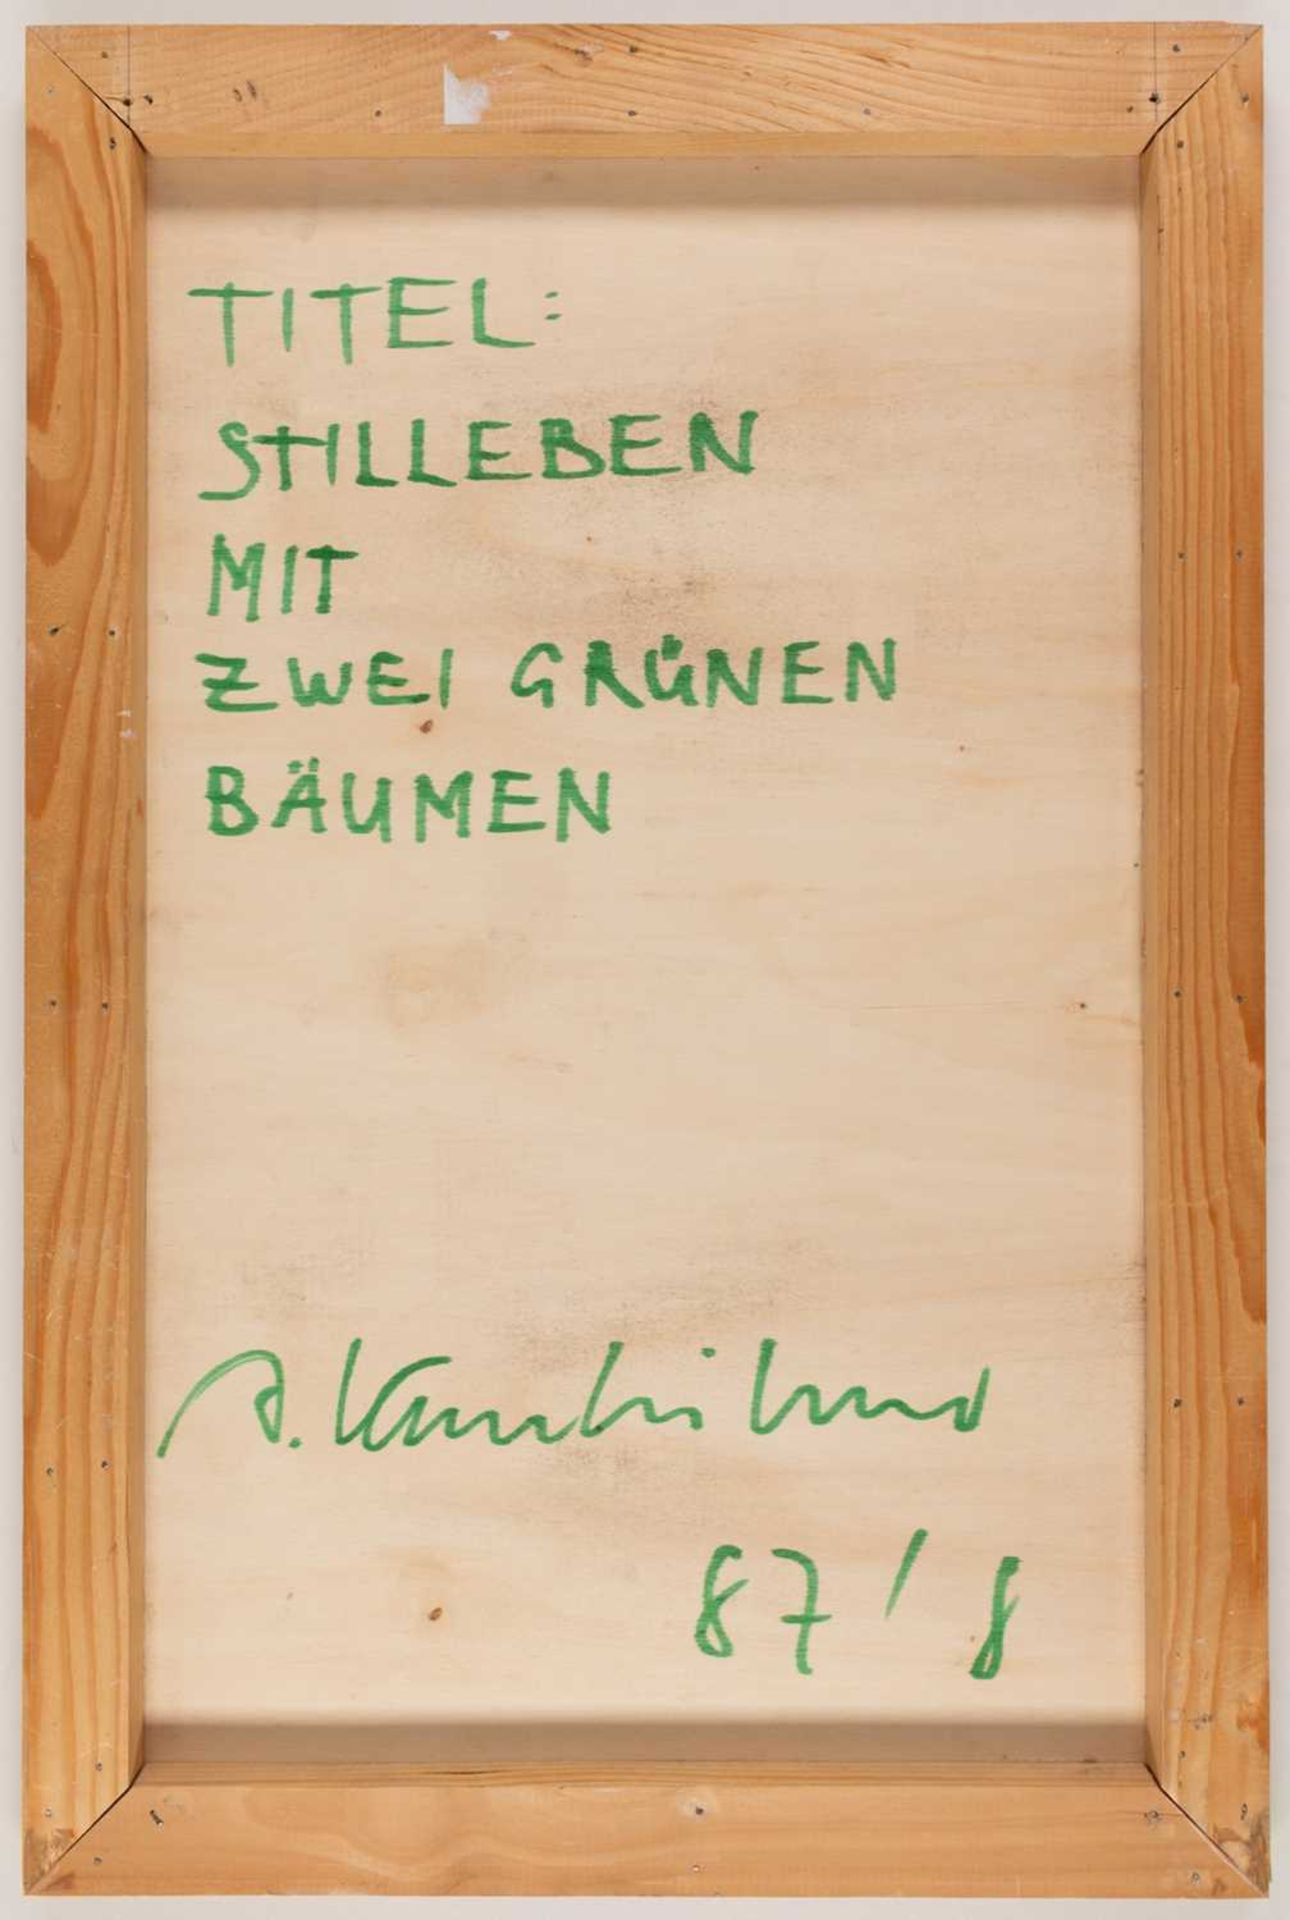 TITEL:
STILLEBEN
MIT
ZWEI GRÜNEN
BÄUMEN
A.
87/8